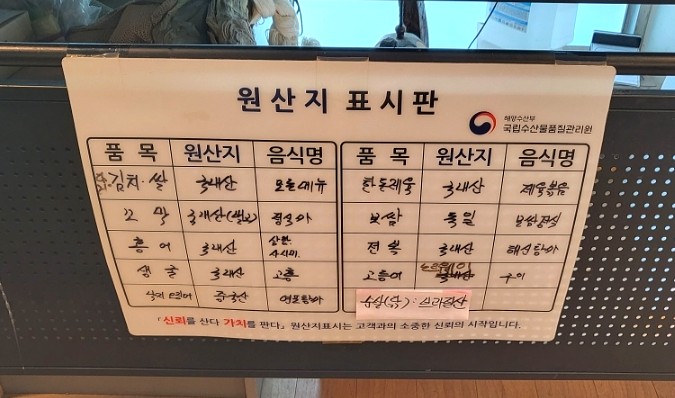 원산지 표시판
해양수산부
국립수산물품질관리원
품 목 원산지 음식명 품 목 원산지 음식명
김치·쌀 국내산 모든메뉴 한돈제육 국내산 제육볶음
꼬막 국내산(벌교) 정식外 보쌈 독일 보쌈정식
홍어 국내산 삼합 사시미 전복 국내산 해신탕外
생굴 국내산 고흥 고등어 노르웨이 구이
낙지 중국산 연포탕外 : 브라질산
「신뢰를 산다 가치를 판다」 원산지표시는 고객과의 소중한 신뢰의 시작입니다.